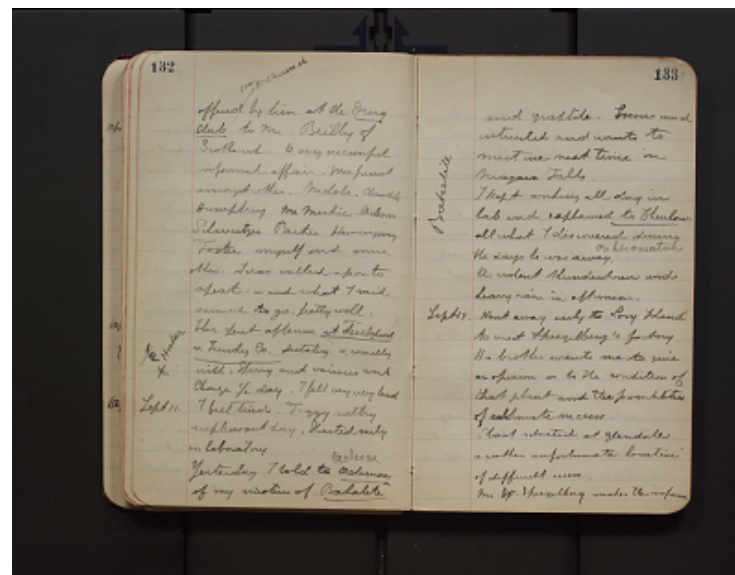 132
offered by him at the Drug
Club to Mr. Beilby of
Scotland. A very successful
informal affair. We found
amongst other. Nichols. Chandler
Humphrey McMurtrie Acheson
Schweitzer Parker Hemingway
Toch myself and some
other. I was called upon to
speak. and what I said
seemed to go pretty well.
Has spent afternoon at Development
& Funding Co.
with. Hooker and
Charge 1/2 day. I felt very very tired
Sept 11. I feel tired. Foggy sultry
unpleasant day. Started early
in laboratory
Acheson
Yesterday I told to Acheson
of my invention of Bakalite
Hooker
133
and graphite. Seems much
interested and wants to
meet me next time in
Niagara Falls.
I kept working all day in
lab and explained to Thurlow
all what I discovered during
on his vacation
the days he was away.
A violent thunderstorm and
heavy rain in afternoon.
Bakalite
Sept 12. Went away early to Long Island
to visit Spiegelberg's factory
His brother wants me to give
an opinion as to the condition of
that plant and the possibilities
of ultimate success.
Plant situated at Glendale
a rather unfortunate location
of difficult access.
Mr. W. Spiegelberg makes the impression